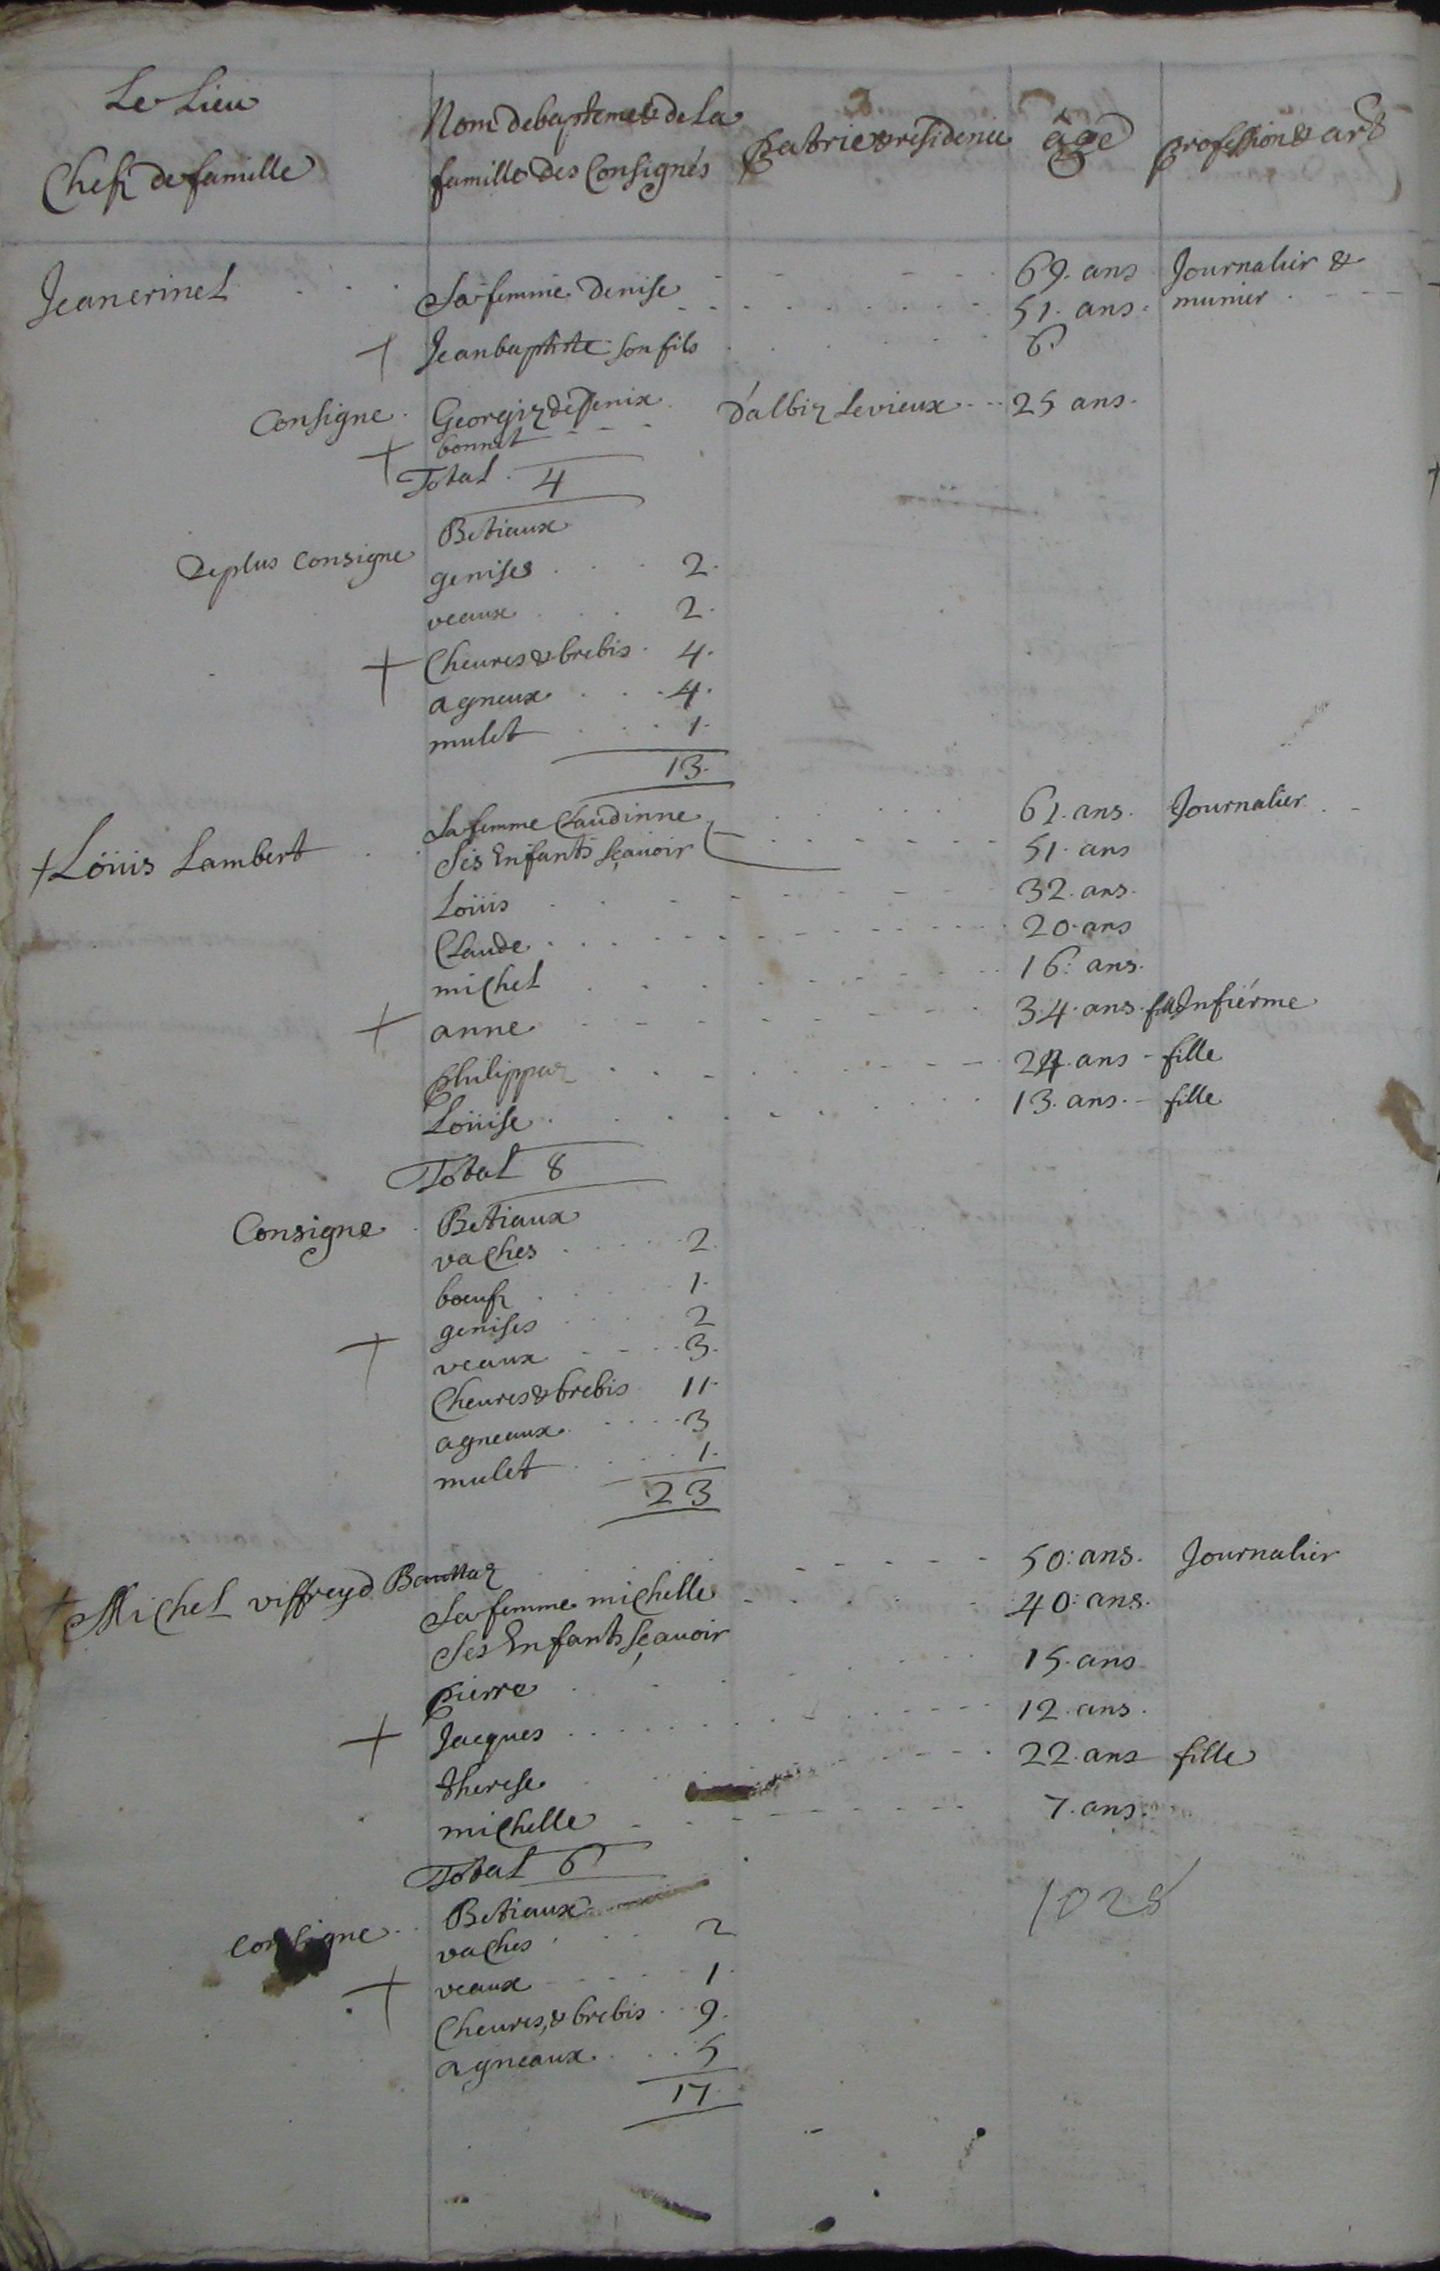 Le Lieu
Chefz de famille
Nom de bapteme & de La
famille des Consignés
patrie & residence
âge
profession & art
Jean erinet
69. ans Journalier &
Sa femme denise 51. ans. munier
+ Jean baptiste son fils 6
Consigne Georgiz
D'albiz Le vieux 25 ans.
+ bonnet
Total. 4
De plus Consigne Betiaux
genises 2.
veaux 2.
+ Cheures & brebis. 4.
agneux 4.
mulet 1.
13.
+ Loüis Lambert 61. ans. Journalier
Sa femme Claudinne 51. ans
Ses Enfants sçauoir
Loüis 32. ans.
Claude 20. ans
michel 16: ans.
+ anne 34. ans. Infiérme
philippaz 24. ans - fille
Loüise 13. ans. - fille
Total 8
Consigne Betiaux
vaches 2.
bœufz 1.
genises 2
+ veaux 3.
Cheures & brebis 11.
agneaux 3
mulet 1.
23
+ Michel viffreyd 50: ans. Journalier
Sa femme michelle 40: ans.
Ses Enfants sçauoir
pierre 15. ans
+ Jacques 12. ans.
therese 22. ans fille
michelle 7. ans.
Total 6
1028
Consigne Betiaux
vaches 2
+ veaux 1.
Cheures, & brebis 9.
agneaux 5
17.